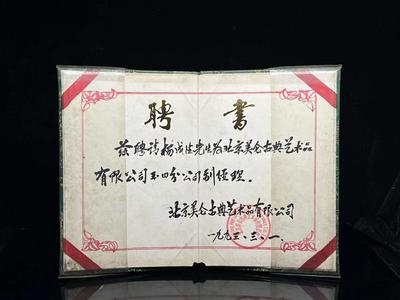 聘书
兹聘请杨成佳先生为北京美仑古典艺术品
有限公司五四分公司副经理.
北京美仑古典艺术品有限公司
一九九三.三.一.